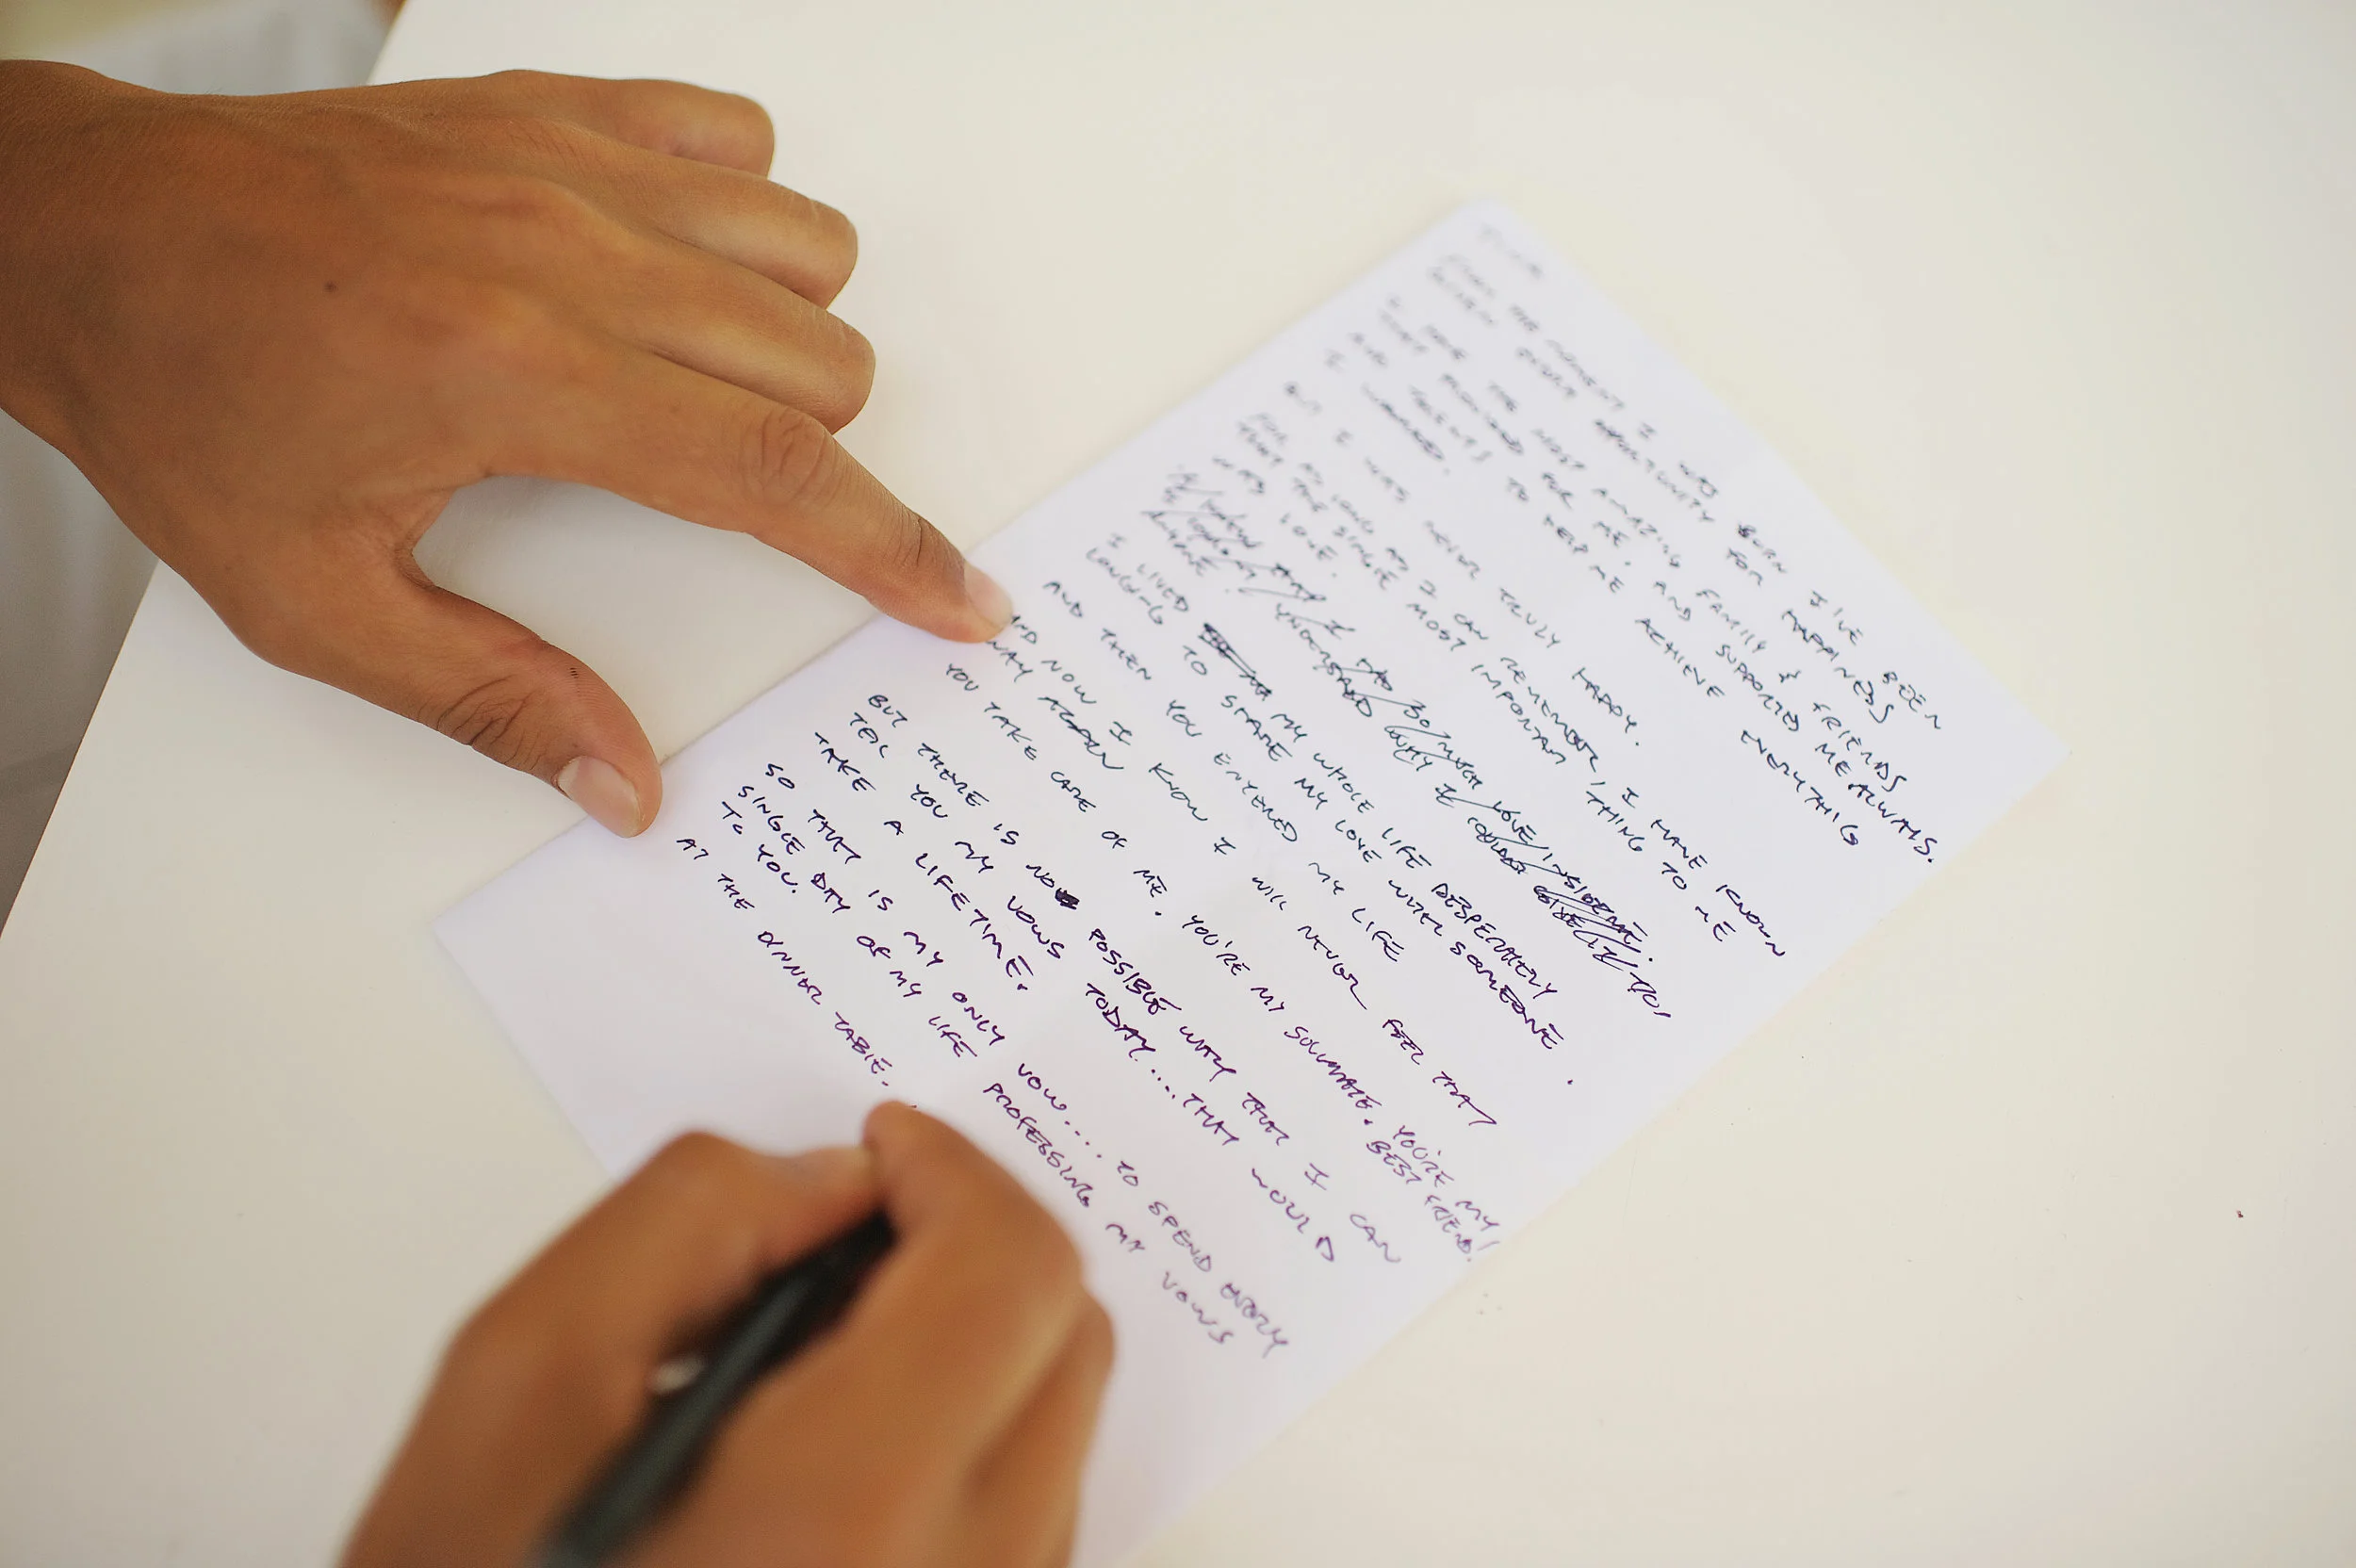 FROM THE MOMENT I WAS BORN I'VE BEEN
GIVEN EVERY OPPORTUNITY FOR HAPPINESS
I HAVE THE MOST AMAZING FAMILY & FRIENDS
THAT PROVIDED FOR ME. AND SUPPORTED ME ALWAYS.
AND TALENTS TO HELP ME ACHIEVE EVERYTHING
I WANTED.
BUT I WAS NEVER TRULY HAPPY.
FOR AS LONG AS I CAN REMEMBER, I HAVE KNOWN
THAT THE SINGLE MOST IMPORTANT THING TO ME
WAS LOVE.
THAT I HAD SO MUCH LOVE INSIDE ME.
UNDERSTAND WHY I COULDN'T GIVE IT TO
I LIVED MY WHOLE LIFE DESPERATELY
LONGING TO SHARE MY LOVE WITH SOMEONE.
AND THEN YOU ENTERED MY LIFE
AND NOW I KNOW I WILL NEVER FEEL THAT
WAY AGAIN
YOU TAKE CARE OF ME. YOU'RE MY SOULMATE. YOU'RE MY
BEST FRIEND!
BUT THERE IS NO POSSIBLE WAY THAT I CAN
TELL YOU MY VOWS TODAY.... THAT WOULD
TAKE A LIFETIME.
SO THAT IS MY ONLY VOW.... TO SPEND EVERY
SINGLE DAY OF MY LIFE PROFESSING MY VOWS
TO YOU.
AT THE DINNER TABLE.